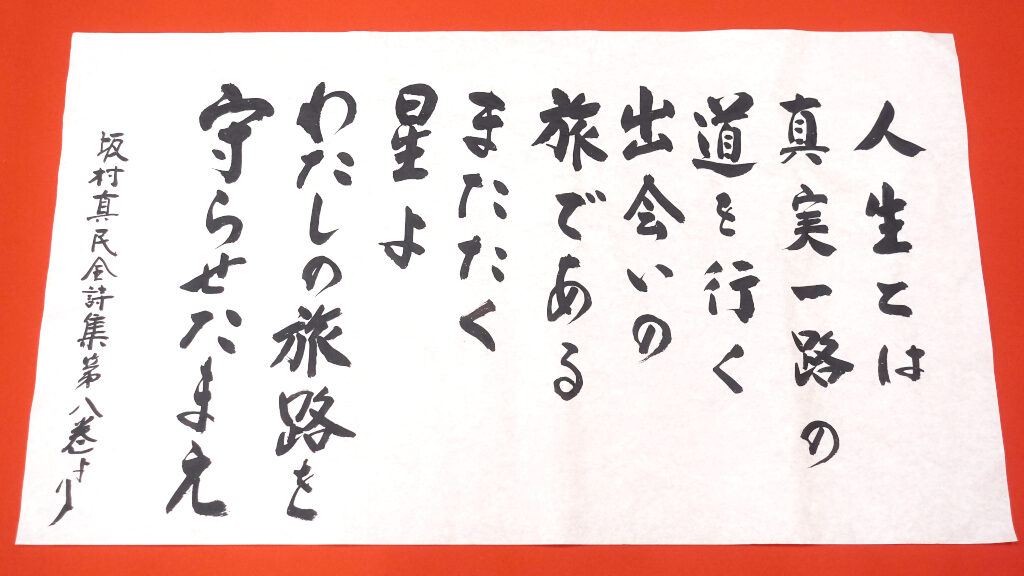 人生とは
真実一路の
道を行く
出会いの
旅である
またたく
星よ
わたしの旅路を
守らせたまえ
坂村真民全詩集第八巻より